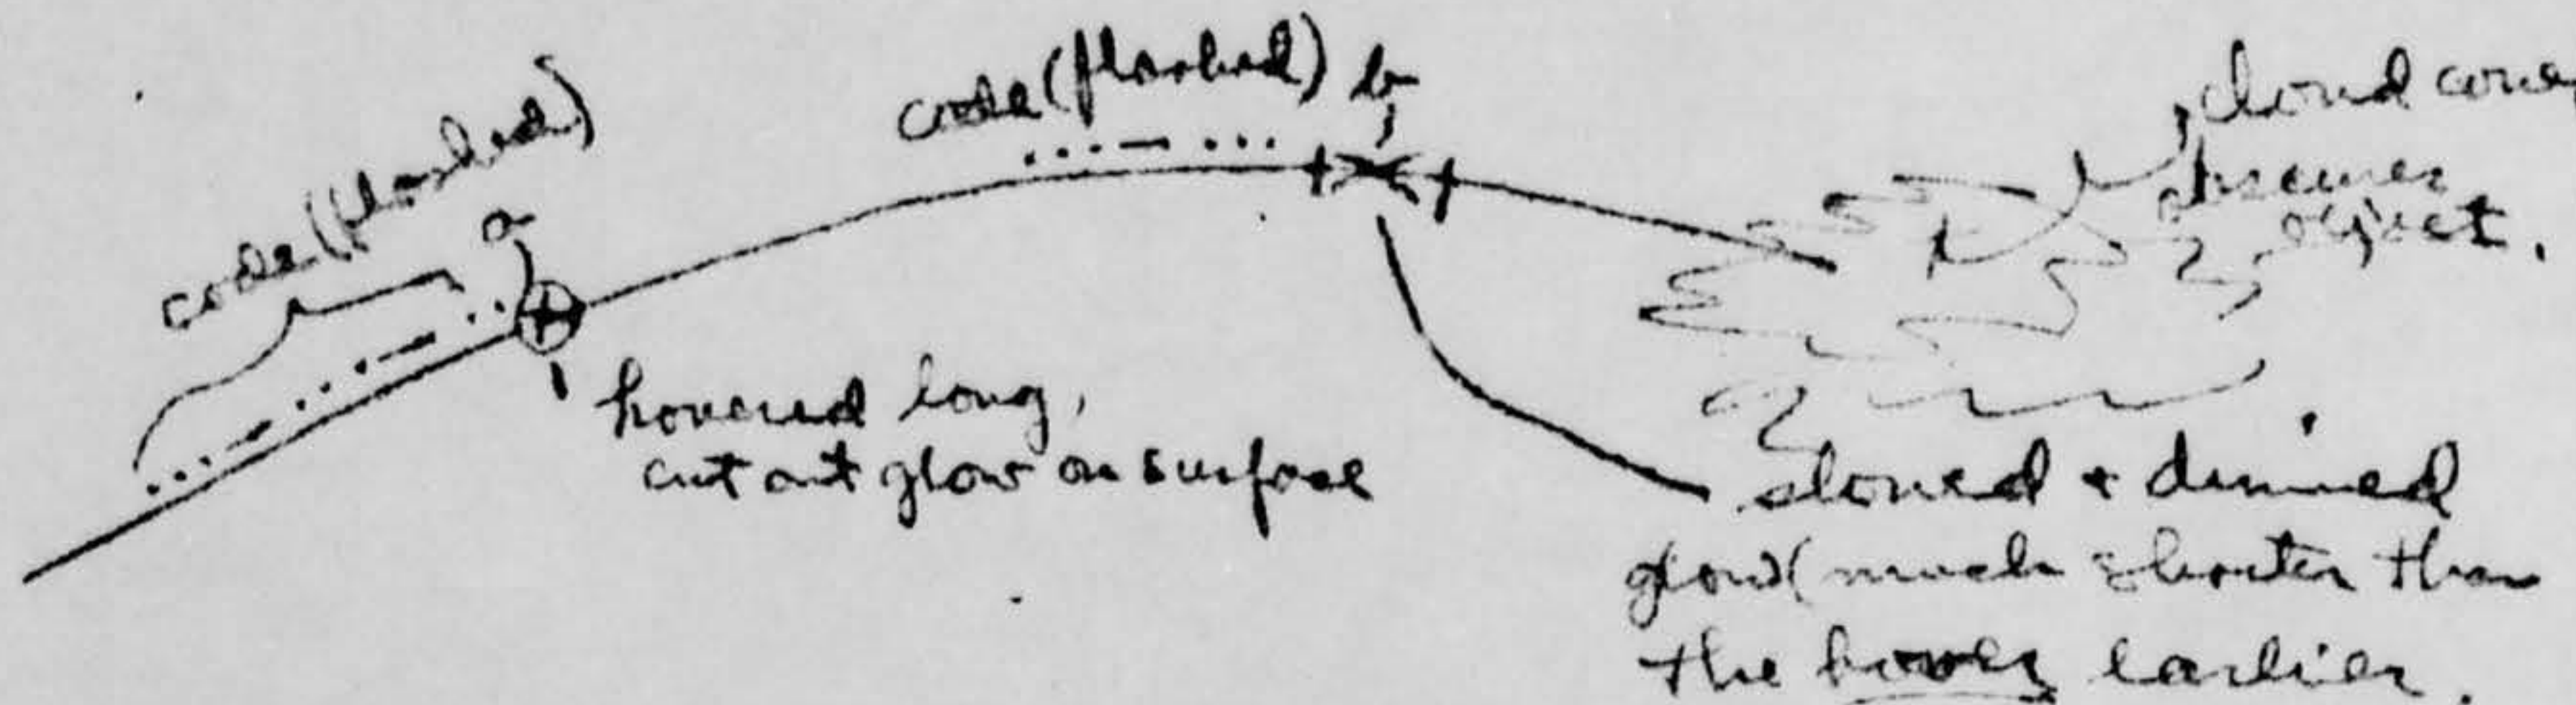 code (flashed)
a
code (flashed) b
... — ...
cloud cover
obscures
object.
hovered long,
cut out glow on surface
slowed + dimmed
glow (much shorter than
the hover earlier.